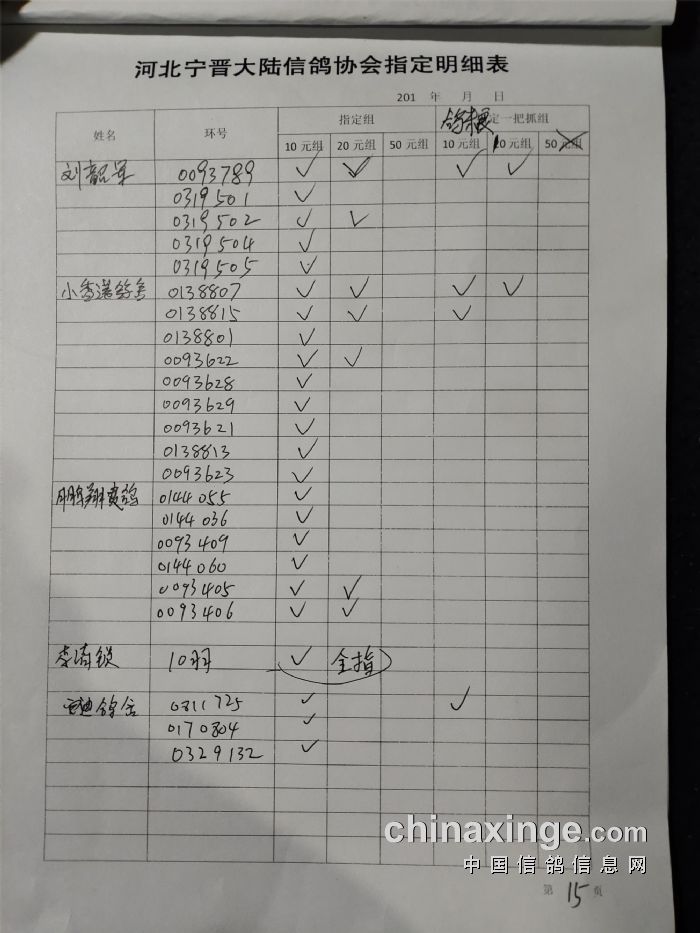 河北宁晋大陆信鸽协会指定明细表
201 年 月 日
姓名 环号 指定组 定一把抓组
10元组 20元组 50元组 10元组 10元组 50元组
刘韶军 0093789 ✓ ✓ ✓ ✓
0319501 ✓
0319502 ✓ ✓
0319504 ✓
0319505 ✓
0138807 ✓ ✓ ✓ ✓
0138815 ✓ ✓ ✓
0138801 ✓
0093622 ✓ ✓
0093628 ✓
0093629 ✓
0093621 ✓
0138813 ✓
0093623 ✓
鹏翔赛鸽 0144055 ✓
0144036 ✓
0093409 ✓
0144060 ✓
0093405 ✓ ✓
0093406 ✓ ✓
李涛锁 10羽 ✓ 全指
鸽舍 0311725 ✓ ✓
0170804 ✓
0329132 ✓
chinaxinge.com
中国信鸽信息网
第 15 页